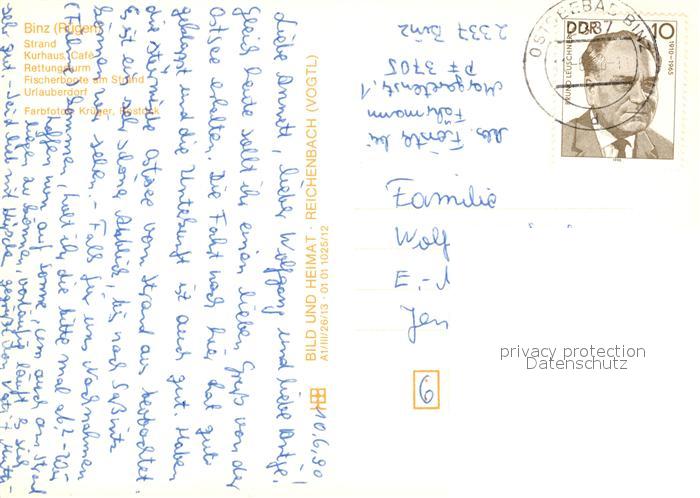 Binz (Rügen)
Strand
Kurhaus, Café
Rettungsturm
Fischerboote am Strand
Urlauberdorf
Farbfotos: Krüger, Rostock
10.6.90
Liebe Annett, lieber Wolfgang und liebe Antje!
Gleich heute sollt ihr einen lieben Gruß von der
Ostsee erhalten. Die Fahrt nach hier hat gut
geklappt und die Unterkunft ist auch gut. Haben
die stürmische Ostsee vom Strand aus beobachtet.
Es ist ein sehr schöner Anblick, bis nach Saßnitz
können wir sehen. - Falls für uns Nachnahmen
kommen, holt ihr die bitte mal ab? - Wir
hoffen nun auf Sonne, um auch am Strand
liegen zu können, vorläufig läuft es sich
sehr gut. - Seid lieb mit
BILD UND HEIMAT · REICHENBACH (VOGTL)
A1/III/26/13 · 01 01 1025/12
Abs. bei
Fährmann
Margaretenstr. 1
PF 3705
2337 Binz
OSTSEEBAD BINZ
2337
DDR 10
BRUNO LEUSCHNER
1910-1965
Familie
Wolf
E.-
Jen
6
privacy protection
Datenschutz